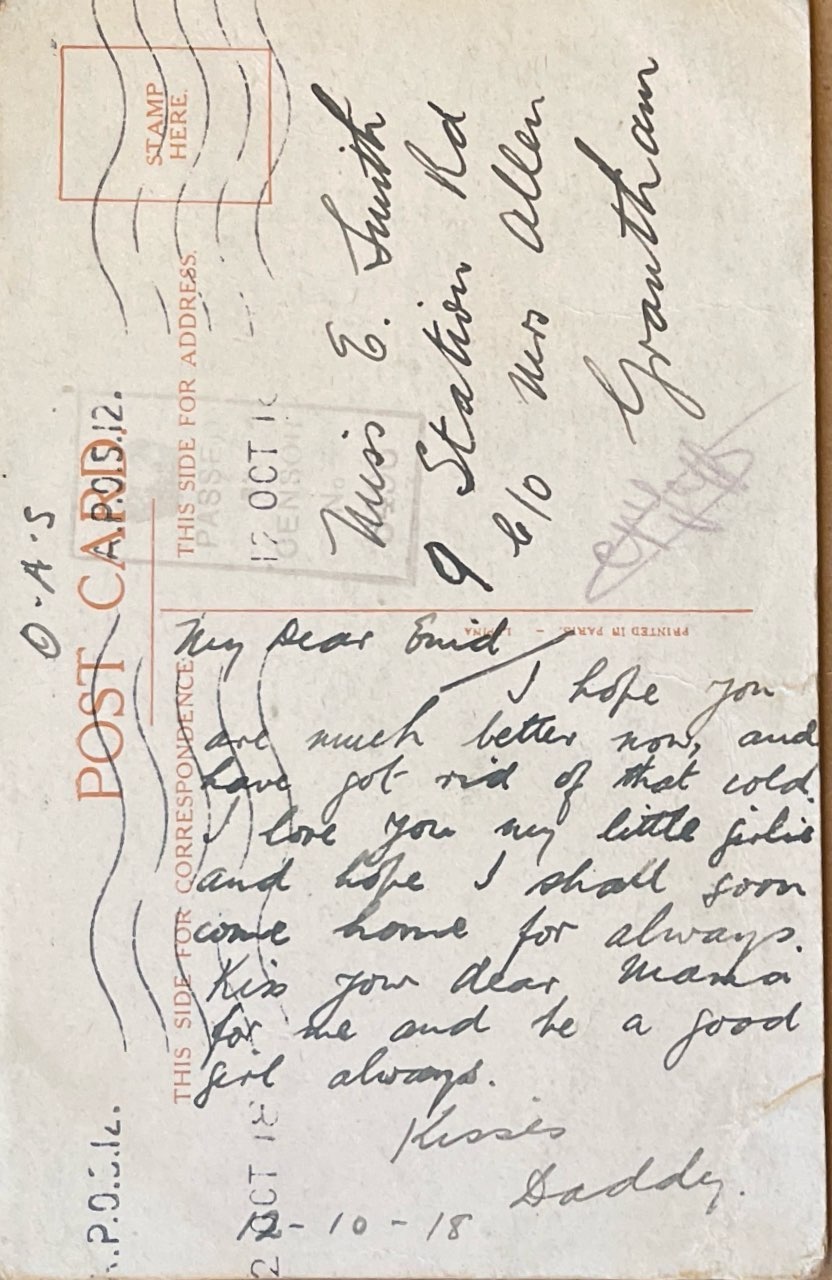 O.A.S
POST CARD.
A.P.O.S.12.
STAMP
HERE.
THIS SIDE FOR CORRESPONDENCE
THIS SIDE FOR ADDRESS.
PASSE
CENSOR
No
12 OCT 1
Miss E. Smith
9 Station Rd
C/o Mrs Allen
Grantham
PRINTED IN PARIS
My Dear Enid
I hope you
are much better now, and
have got rid of that cold.
I love you my little girlie
and hope I shall soon
come home for always.
Kiss your dear Mama
for me and be a good
girl always.
Kisses
Daddy.
12-10-18
.P.O.S.12.
2 OCT 18